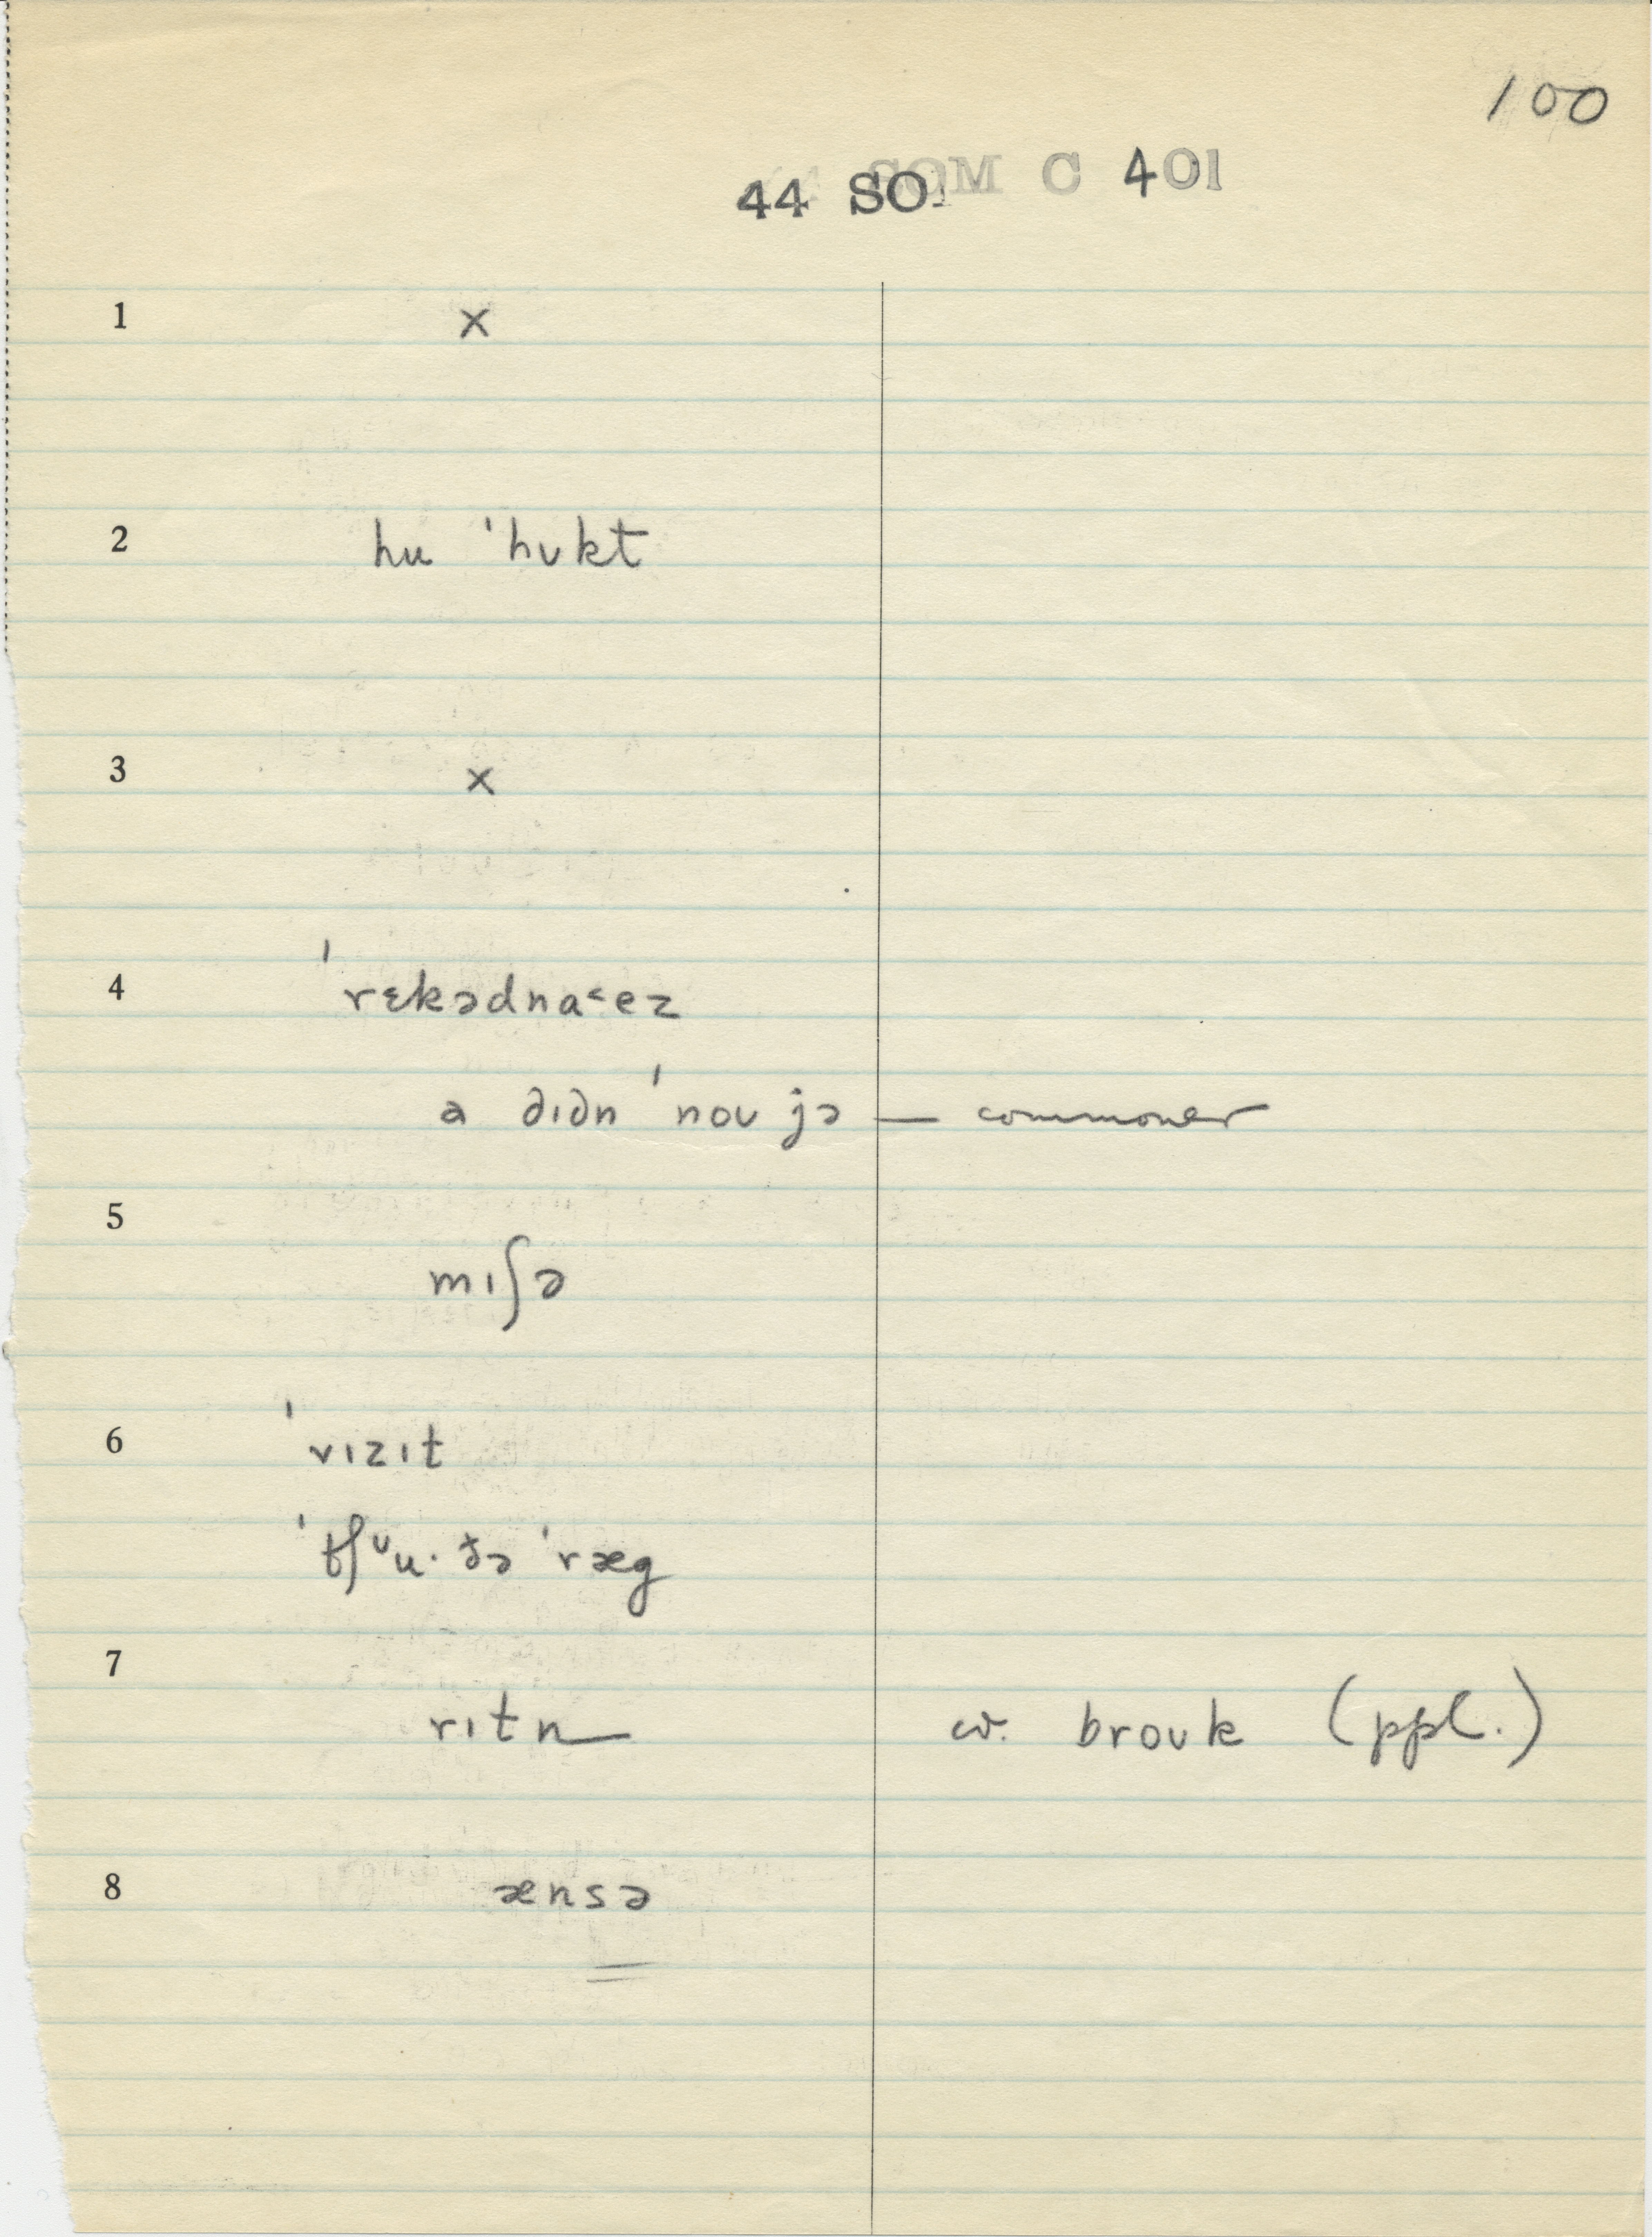 100
44 SOM C 401
1 ×
2 hu ˈhʊkt
3 ×
4 ˈrɛkədna˂ez
a ðɪðn ˈnoʊ jə — commoner
5 mɪʃə
6 ˈvɪzɪt
ˈtʃᶷu· ðə ˈræg
7 rɪtn cv. broʊk (ppl.)
8 ænsə